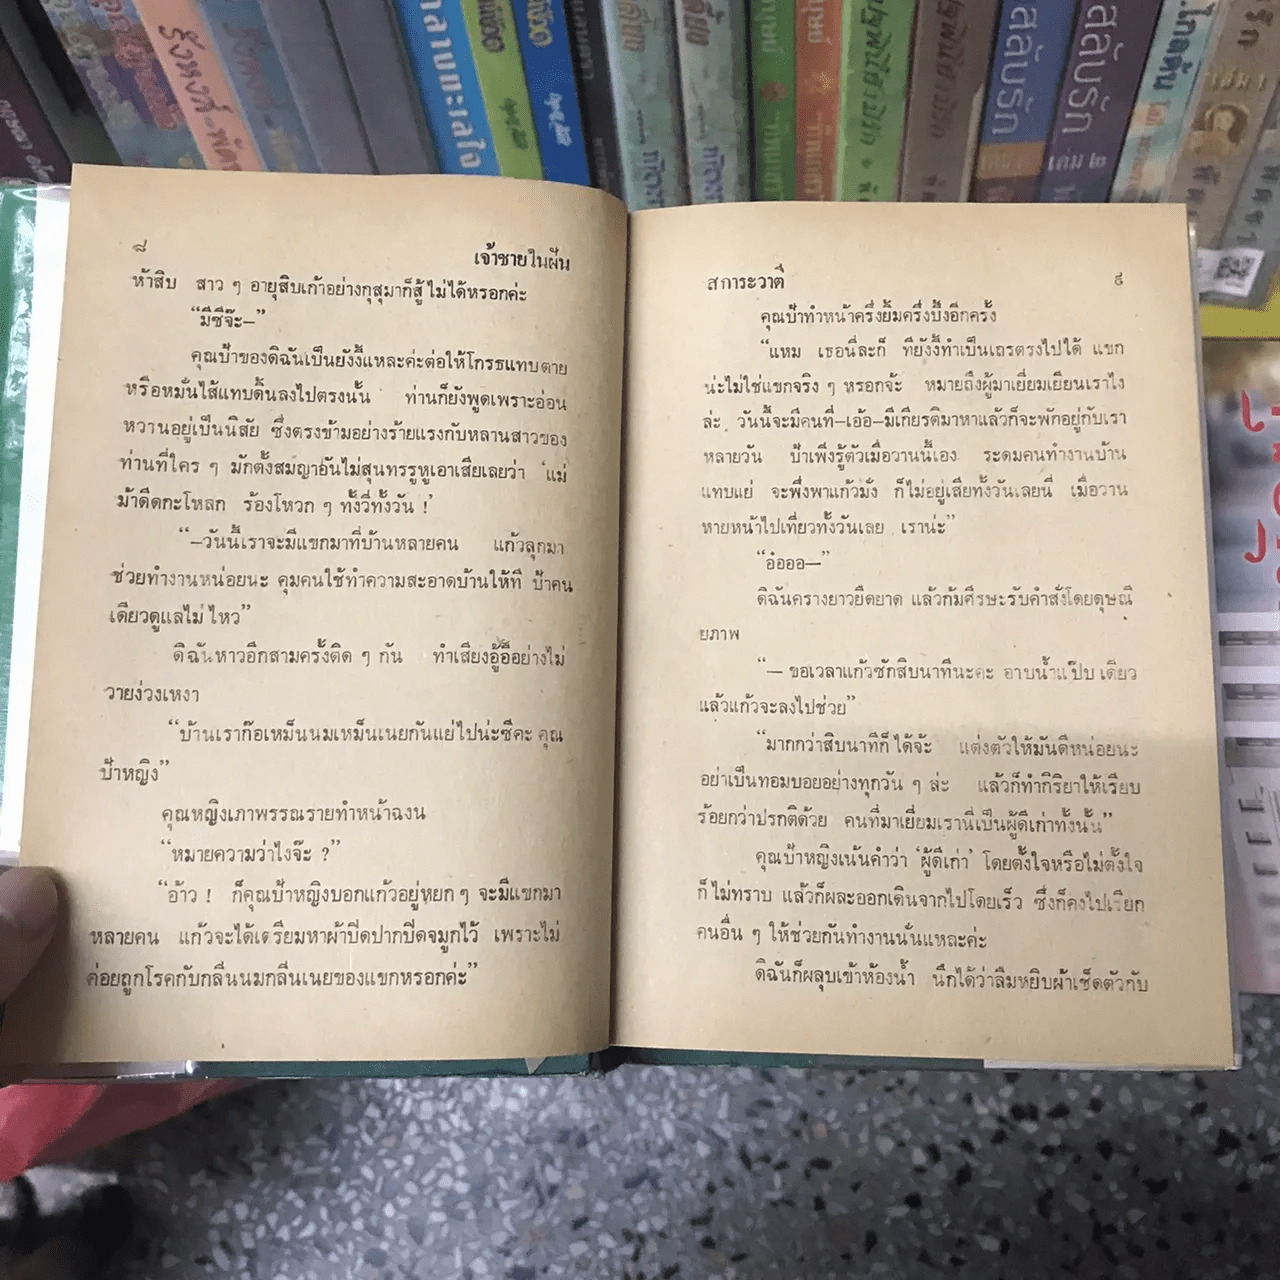 ๘
เจ้าชายในฝัน
ห้าสิบ สาว ๆ อายุสิบเก้าอย่างกุสุมาก็สู้ไม่ได้หรอกค่ะ
“มีซีจ๊ะ—”
คุณป้าของดิฉันเป็นยังงี้แหละค่ะต่อให้โกรธแทบตาย
หรือหมั่นไส้แทบดิ้นลงไปตรงนั้น ท่านก็ยังพูดเพราะอ่อน
หวานอยู่เป็นนิสัย ซึ่งตรงข้ามอย่างร้ายแรงกับหลานสาวของ
ท่านที่ใคร ๆ มักตั้งสมญาอันไม่สุนทรรูหูเอาเสียเลยว่า ‘แม่
ม้าดีดกะโหลก ร้องโหวก ๆ ทั้งวี่ทั้งวัน !
“—วันนี้เราจะมีแขกมาที่บ้านหลายคน แก้วลุกมา
ช่วยทำงานหน่อยนะ คุมคนใช้ทำความสะอาดบ้านให้ที ป้าคน
เดียวดูแลไม่ไหว”
ดิฉันหาวอีกสามครั้งติด ๆ กัน ทำเสียงอู้อี้อย่างไม่
วายง่วงเหงา
“บ้านเราก๊อเหม็นนมเหม็นเนยกันแย่ไปน่ะซีคะ คุณ
ป้าหญิง”
คุณหญิงเภาพรรณรายทำหน้าฉงน
“หมายความว่าไงจ๊ะ ?”
“อ้าว ! ก็คุณป้าหญิงบอกแก้วอยู่หยก ๆ จะมีแขกมา
หลายคน แก้วจะได้เตรียมหาผ้าปิดปากปิดจมูกไว้ เพราะไม่
ค่อยถูกโรคกับกลิ่นนมกลิ่นเนยของแขกหรอกค่ะ”
สการะวาตี
๙
คุณป้าทำหน้าครึ่งยิ้มครึ่งบึ้งอีกครั้ง
“แหม เธอนี่ละก็ ทียังงี้ทำเป็นเถรตรงไปได้ แขก
น่ะไม่ใช่แขกจริง ๆ หรอกจ้ะ หมายถึงผู้มาเยี่ยมเยียนเราไง
ล่ะ วันนี้จะมีคนที่—เอ้อ—มีเกียรติมาหาแล้วก็จะพักอยู่กับเรา
หลายวัน ป้าเพิ่งรู้ตัวเมื่อวานนี้เอง ระดมคนทำงานบ้าน
แทบแย่ จะพึ่งพาแก้วมั่ง ก็ไม่อยู่เสียทั้งวันเลยนี่ เมื่อวาน
หายหน้าไปเที่ยวทั้งวันเลย เราน่ะ”
“อ๋อออ—”
ดิฉันครางยาวยืดยาด แล้วก้มศีรษะรับคำสั่งโดยดุษณี
ยภาพ
“— ขอเวลาแก้วซักสิบนาทีนะคะ อาบน้ำแป๊บเดียว
แล้วแก้วจะลงไปช่วย”
“มากกว่าสิบนาทีก็ได้จ้ะ แต่งตัวให้มันดีหน่อยนะ
อย่าเป็นทอมบอยอย่างทุกวัน ๆ ล่ะ แล้วก็ทำกิริยาให้เรียบ
ร้อยกว่าปรกติด้วย คนที่มาเยี่ยมเรานี่เป็นผู้ดีเก่าทั้งนั้น”
คุณป้าหญิงเน้นคำว่า ‘ผู้ดีเก่า’ โดยตั้งใจหรือไม่ตั้งใจ
ก็ไม่ทราบ แล้วก็ผละออกเดินจากไปโดยเร็ว ซึ่งก็คงไปเรียก
คนอื่น ๆ ให้ช่วยกันทำงานนั่นแหละค่ะ
ดิฉันก็ผลุบเข้าห้องน้ำ นึกได้ว่าลืมหยิบผ้าเช็ดตัวกับ
สลับรัก
สลับรัก
เล่ม ๒